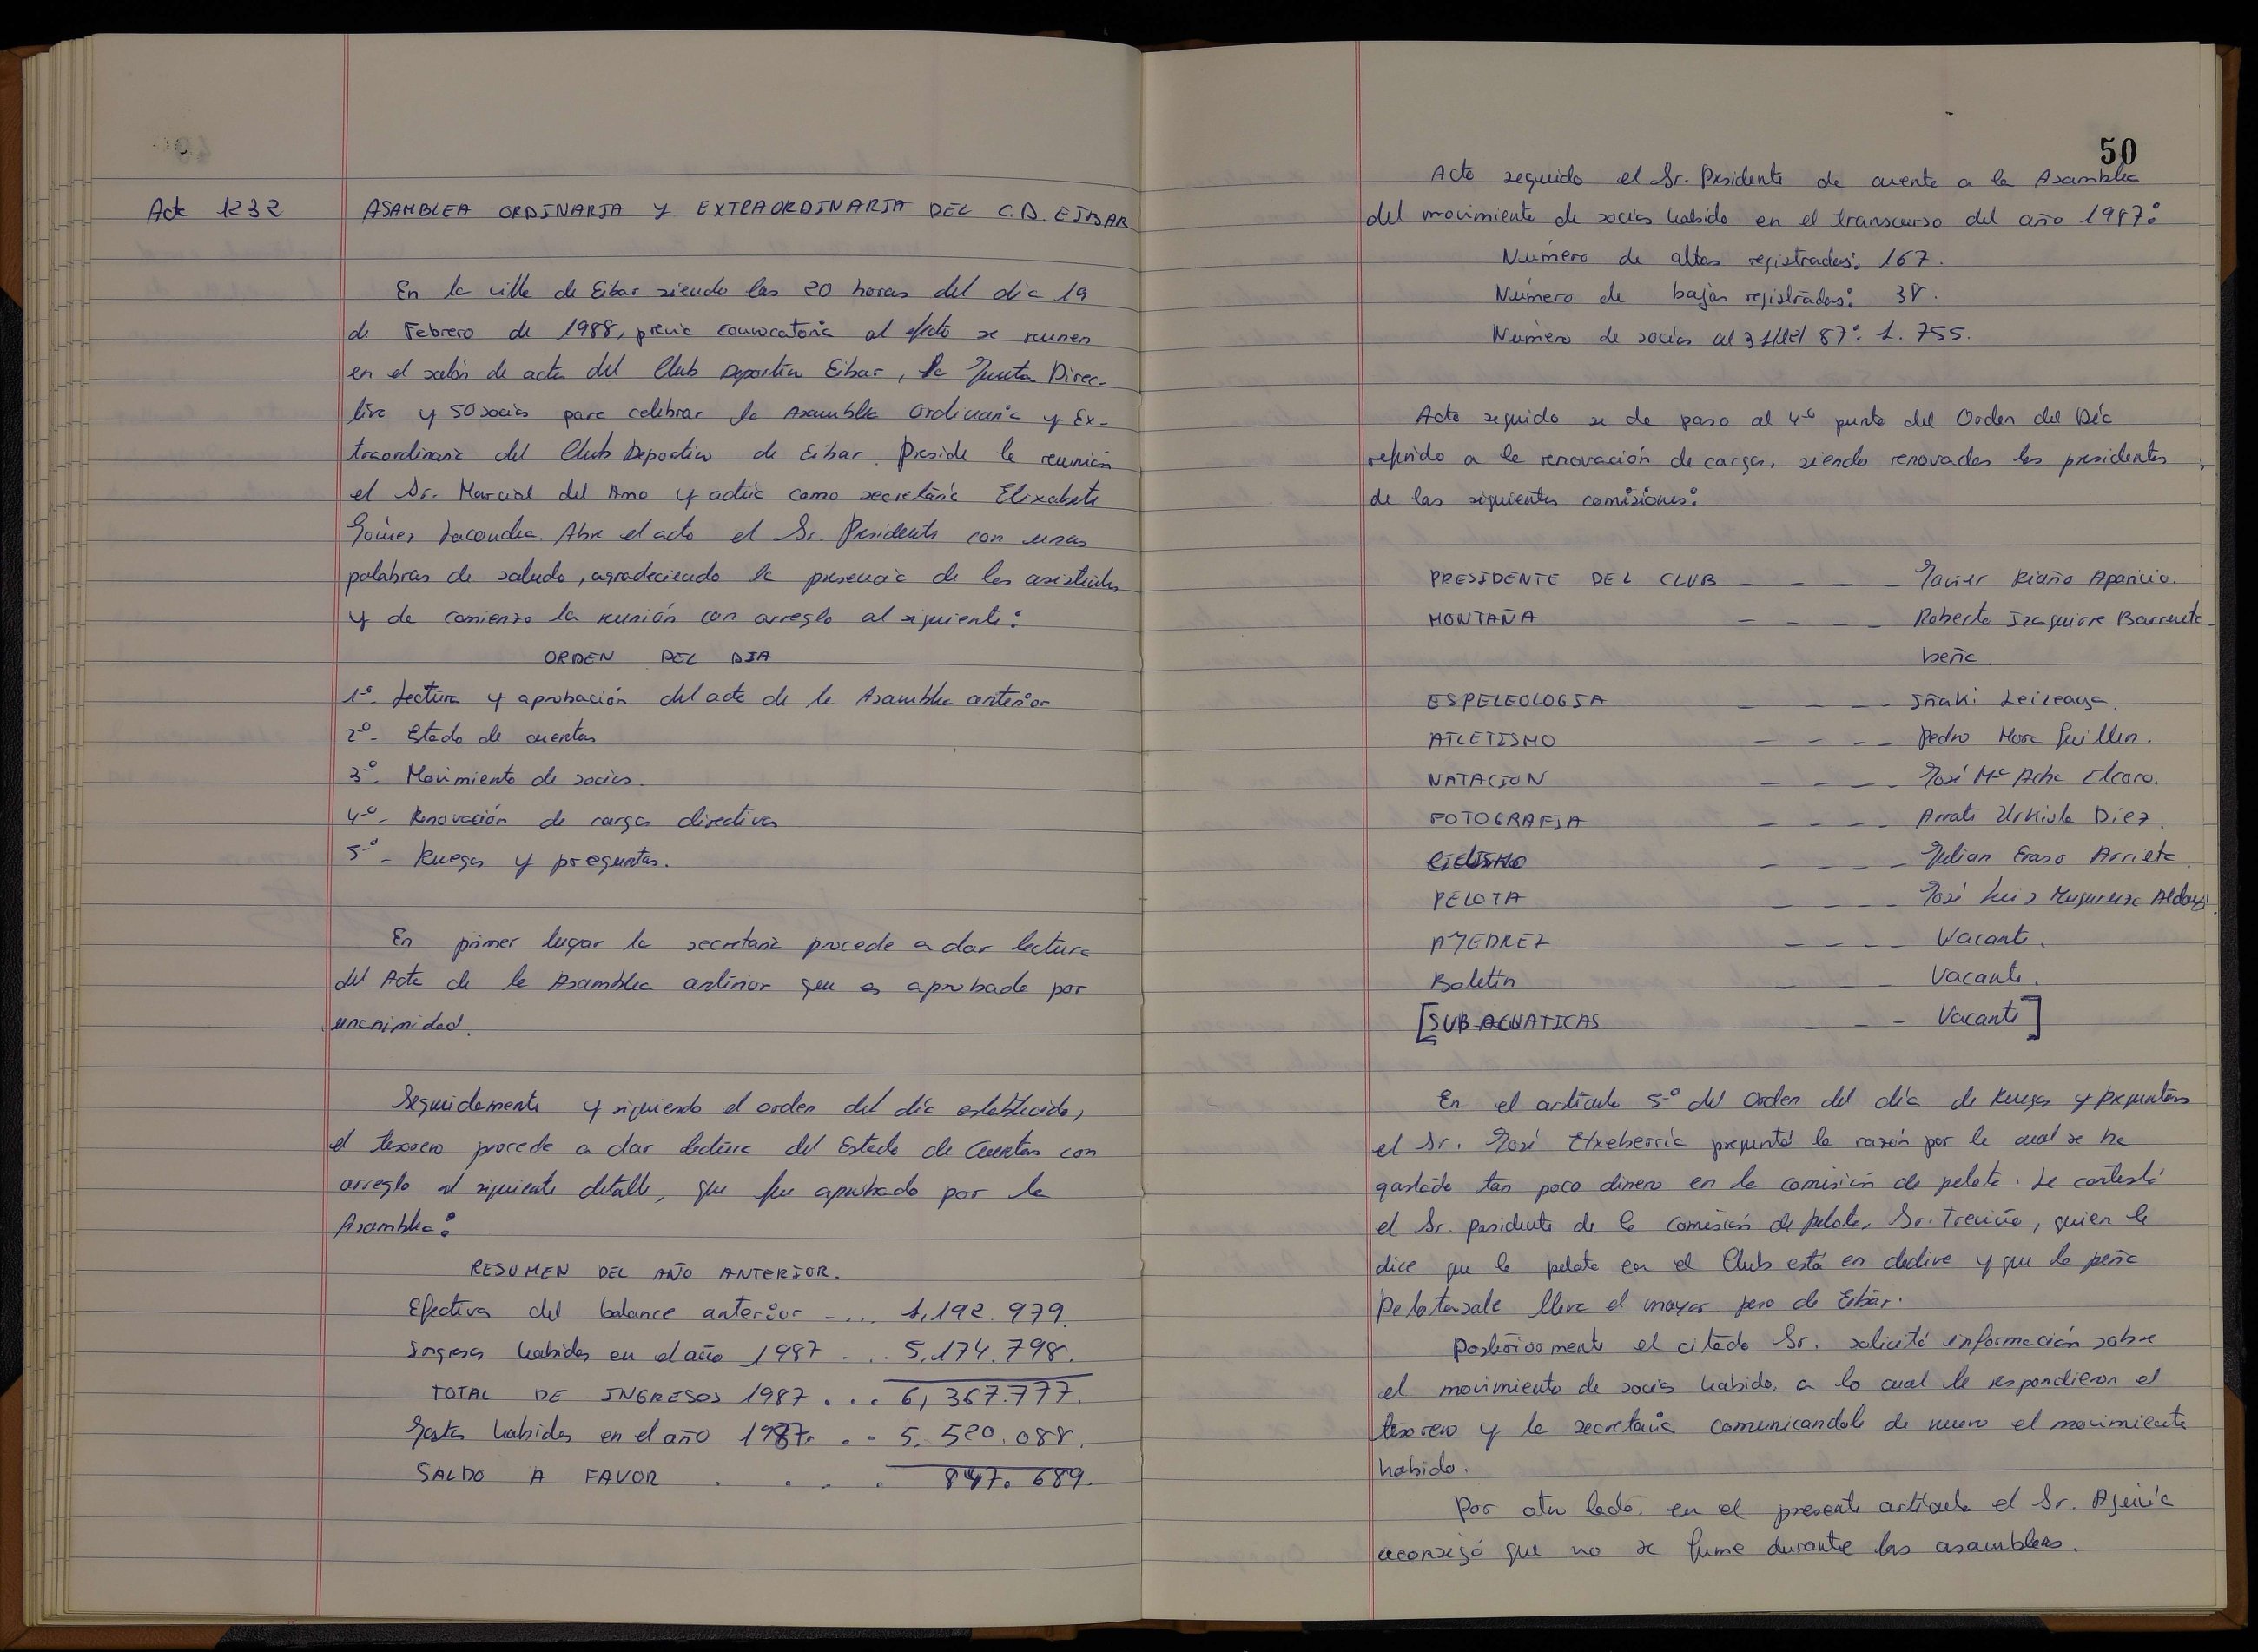 Acta 1232
ASAMBLEA ORDINARIA Y EXTRAORDINARIA DEL C.D. EIBAR
En la villa de Eibar siendo las 20 horas del dia 19
de Febrero de 1988, previa convocatoria al efecto se reunen
en el salón de actos del Club Deportivo Eibar, la Junta Direc-
tiva y 50 socios para celebrar la Asamblea Ordinaria y Ex-
traordinaria del Club Deportivo de Eibar. Preside la reunión
el Sr. Marcial del Amo y actúa como secretaria Elixabete
Gómez Laconcha. Abre el acto el Sr. Presidente con unas
palabras de saludo, agradeciendo la presencia de los asistentes
y da comienzo la reunión con arreglo al siguiente:
ORDEN DEL DIA
1º- Lectura y aprobación del acta de la Asamblea anterior
2º- Estado de cuentas
3º- Movimiento de socios.
4º- Renovación de cargos directivos
5º- Ruegos y preguntas.
En primer lugar la secretaria procede a dar lectura
del Acta de la Asamblea anterior que es aprobada por
unanimidad.
Seguidamente y siguiendo el orden del día establecido,
el tesorero procede a dar lectura del Estado de Cuentas con
arreglo al siguiente detalle, que fue aprobado por la
Asamblea:
RESUMEN DEL AÑO ANTERIOR.
Efectivo del balance anterior - ... 1,192.979.
Ingresos habidos en el año 1987 ... 5,174.798.
TOTAL DE INGRESOS 1987 ... 6,367.777.
Gastos habidos en el año 1987. .. 5.520.088.
SALDO A FAVOR . . . . 847.689.
50
Acto seguido el Sr. Presidente da cuenta a la Asamblea
del movimiento de socios habido en el transcurso del año 1987:
Número de altas registradas: 167.
Número de bajas registradas: 38.
Número de socios al 31/12/87: 1.755.
Acto seguido se da paso al 4º punto del Orden del Día
referido a la renovación de cargos, siendo renovados los presidentes
de las siguientes comisiones:
PRESIDENTE DEL CLUB - - - - Javier Riaño Aparicio.
MONTAÑA - - - - Roberto Izaguirre Barrenete-
beña.
ESPELEOLOGIA - - - - Iñaki Leizeaga.
ATLETISMO - - - - Pedro Mora Guillen.
NATACION - - - - José Mª Acha Elcoro.
FOTOGRAFIA - - - - Arrate Urkiola Diez.
CICLISMO - - - - Julian Eraso Arrieta.
PELOTA - - - - José Luis Muguruza
AJEDREZ - - - - Vacante.
Boletín - - - Vacante.
[SUBACUATICAS - - - Vacante]
En el artículo 5º del Orden del día de Ruegos y preguntas
el Sr. José Etxeberria preguntó la razón por la cual se ha
gastado tan poco dinero en la comisión de pelota. Le contestó
el Sr. presidente de la comisión de pelota, Sr. Treviño, quien le
dice que la pelota en el Club está en declive y que la peña
Pelotazale lleva el mayor peso de Eibar.
Posteriormente el citado Sr. solicitó información sobre
el movimiento de socios habido, a lo cual le respondieron el
tesorero y la secretaria comunicandole de nuevo el movimiento
habido.
Por otro lado, en el presente artículo el Sr.
aconsejó que no se fume durante las asambleas.